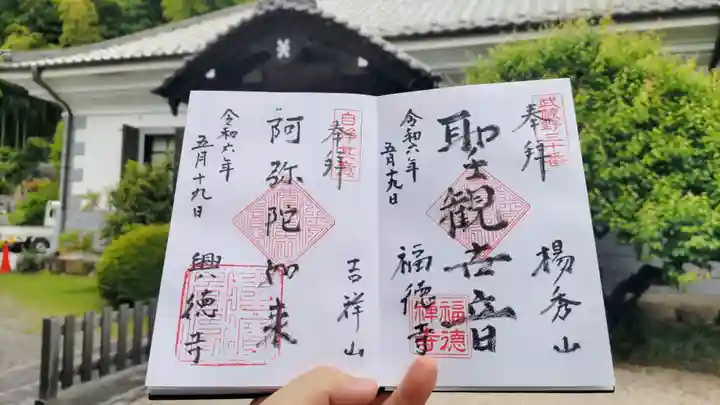 奉拝
武蔵野三十番
楊秀山
聖観世音
福徳寺
福徳禅寺
令和六年
五月十九日
奉拝
吉祥山
阿弥陀如来
興徳寺
令和六年
五月十九日